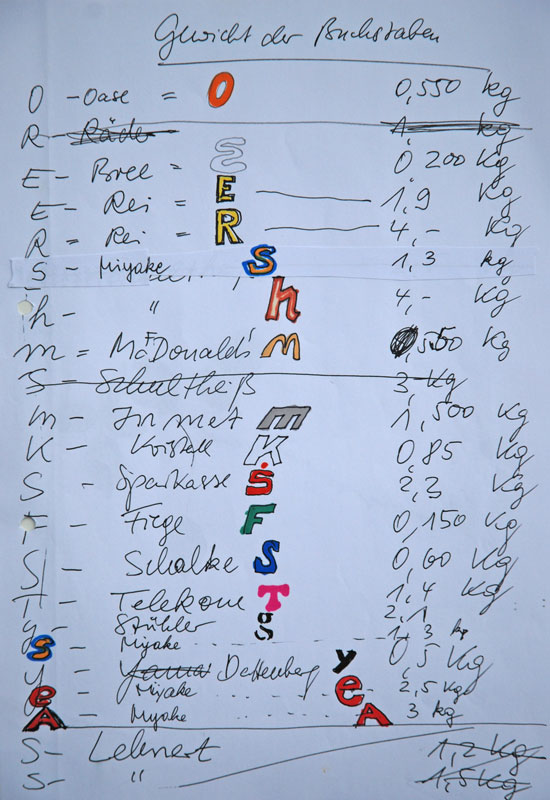 Gewicht der Buchstaben
O - Oase = O 0,550 kg
R - Räder 1, kg
E - Bree = E 0,200 Kg
E - Rei = E 1,9 Kg
R - Rei = R 4,- Kg
S - Miyake S 1,3 kg
h - " h 4,- Kg
m = McDonald's m ,550 Kg
S - Schultheiß 3, Kg
m - Inmet m 1,500 Kg
K - Kristall K 0,85 Kg
S - Sparkasse S 2,3 Kg
F - Fiege F 0,150 Kg
S - Schalke S 0,60 Kg
T - Telekom T 1,4 Kg
g - Stühler g 2,1
s Miyake 1,3 kg
y - Dattenberg y 0,5 Kg
e - Miyake e 2,5 Kg
A - Miyake A 3 kg
S - Lehnert 1,2 Kg
S - " 1,5 Kg